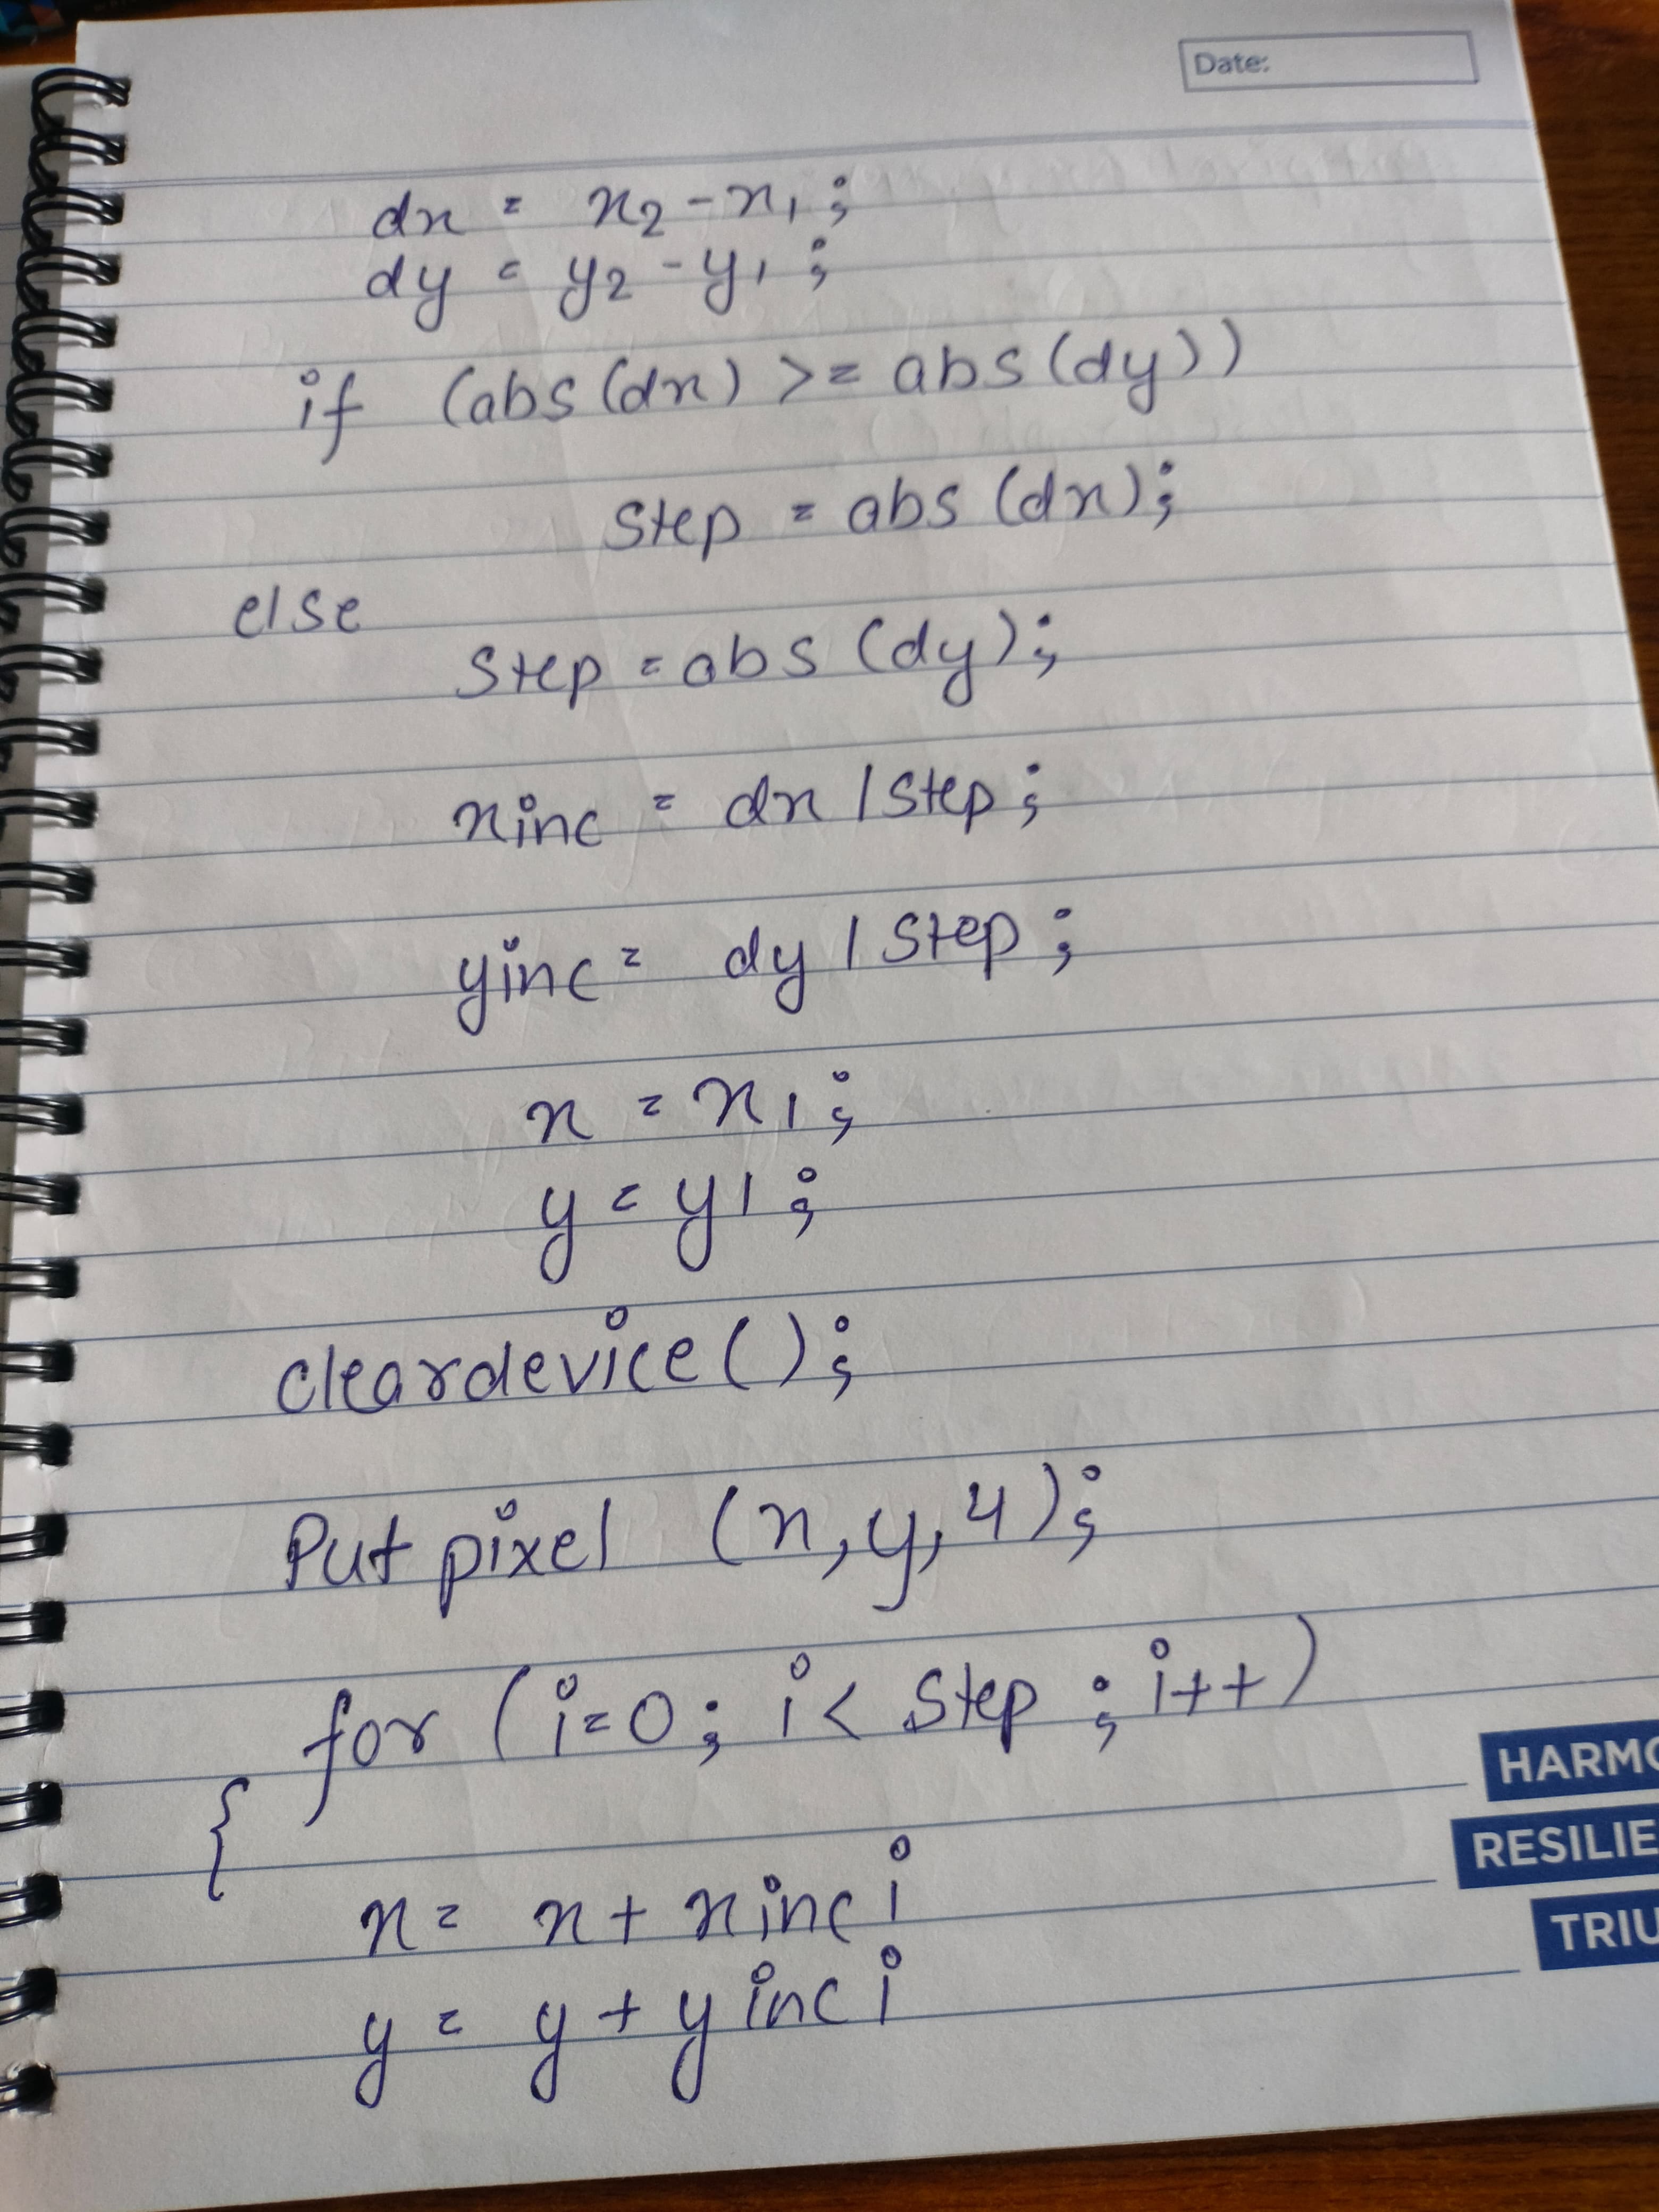 Date:
dx = x2 - x1;
dy = y2 - y1;
if (abs(dx) >= abs(dy))
step = abs (dx);
else
step = abs (dy);
xinc = dx / step;
yinc = dy / step;
x = x1;
y = y1;
cleardevice();
Putpixel (x,y,4);
for (i=0; i< step; i++)
{
x = x + xinc;
y = y + yinc;
HARMO
RESILIE
TRIU